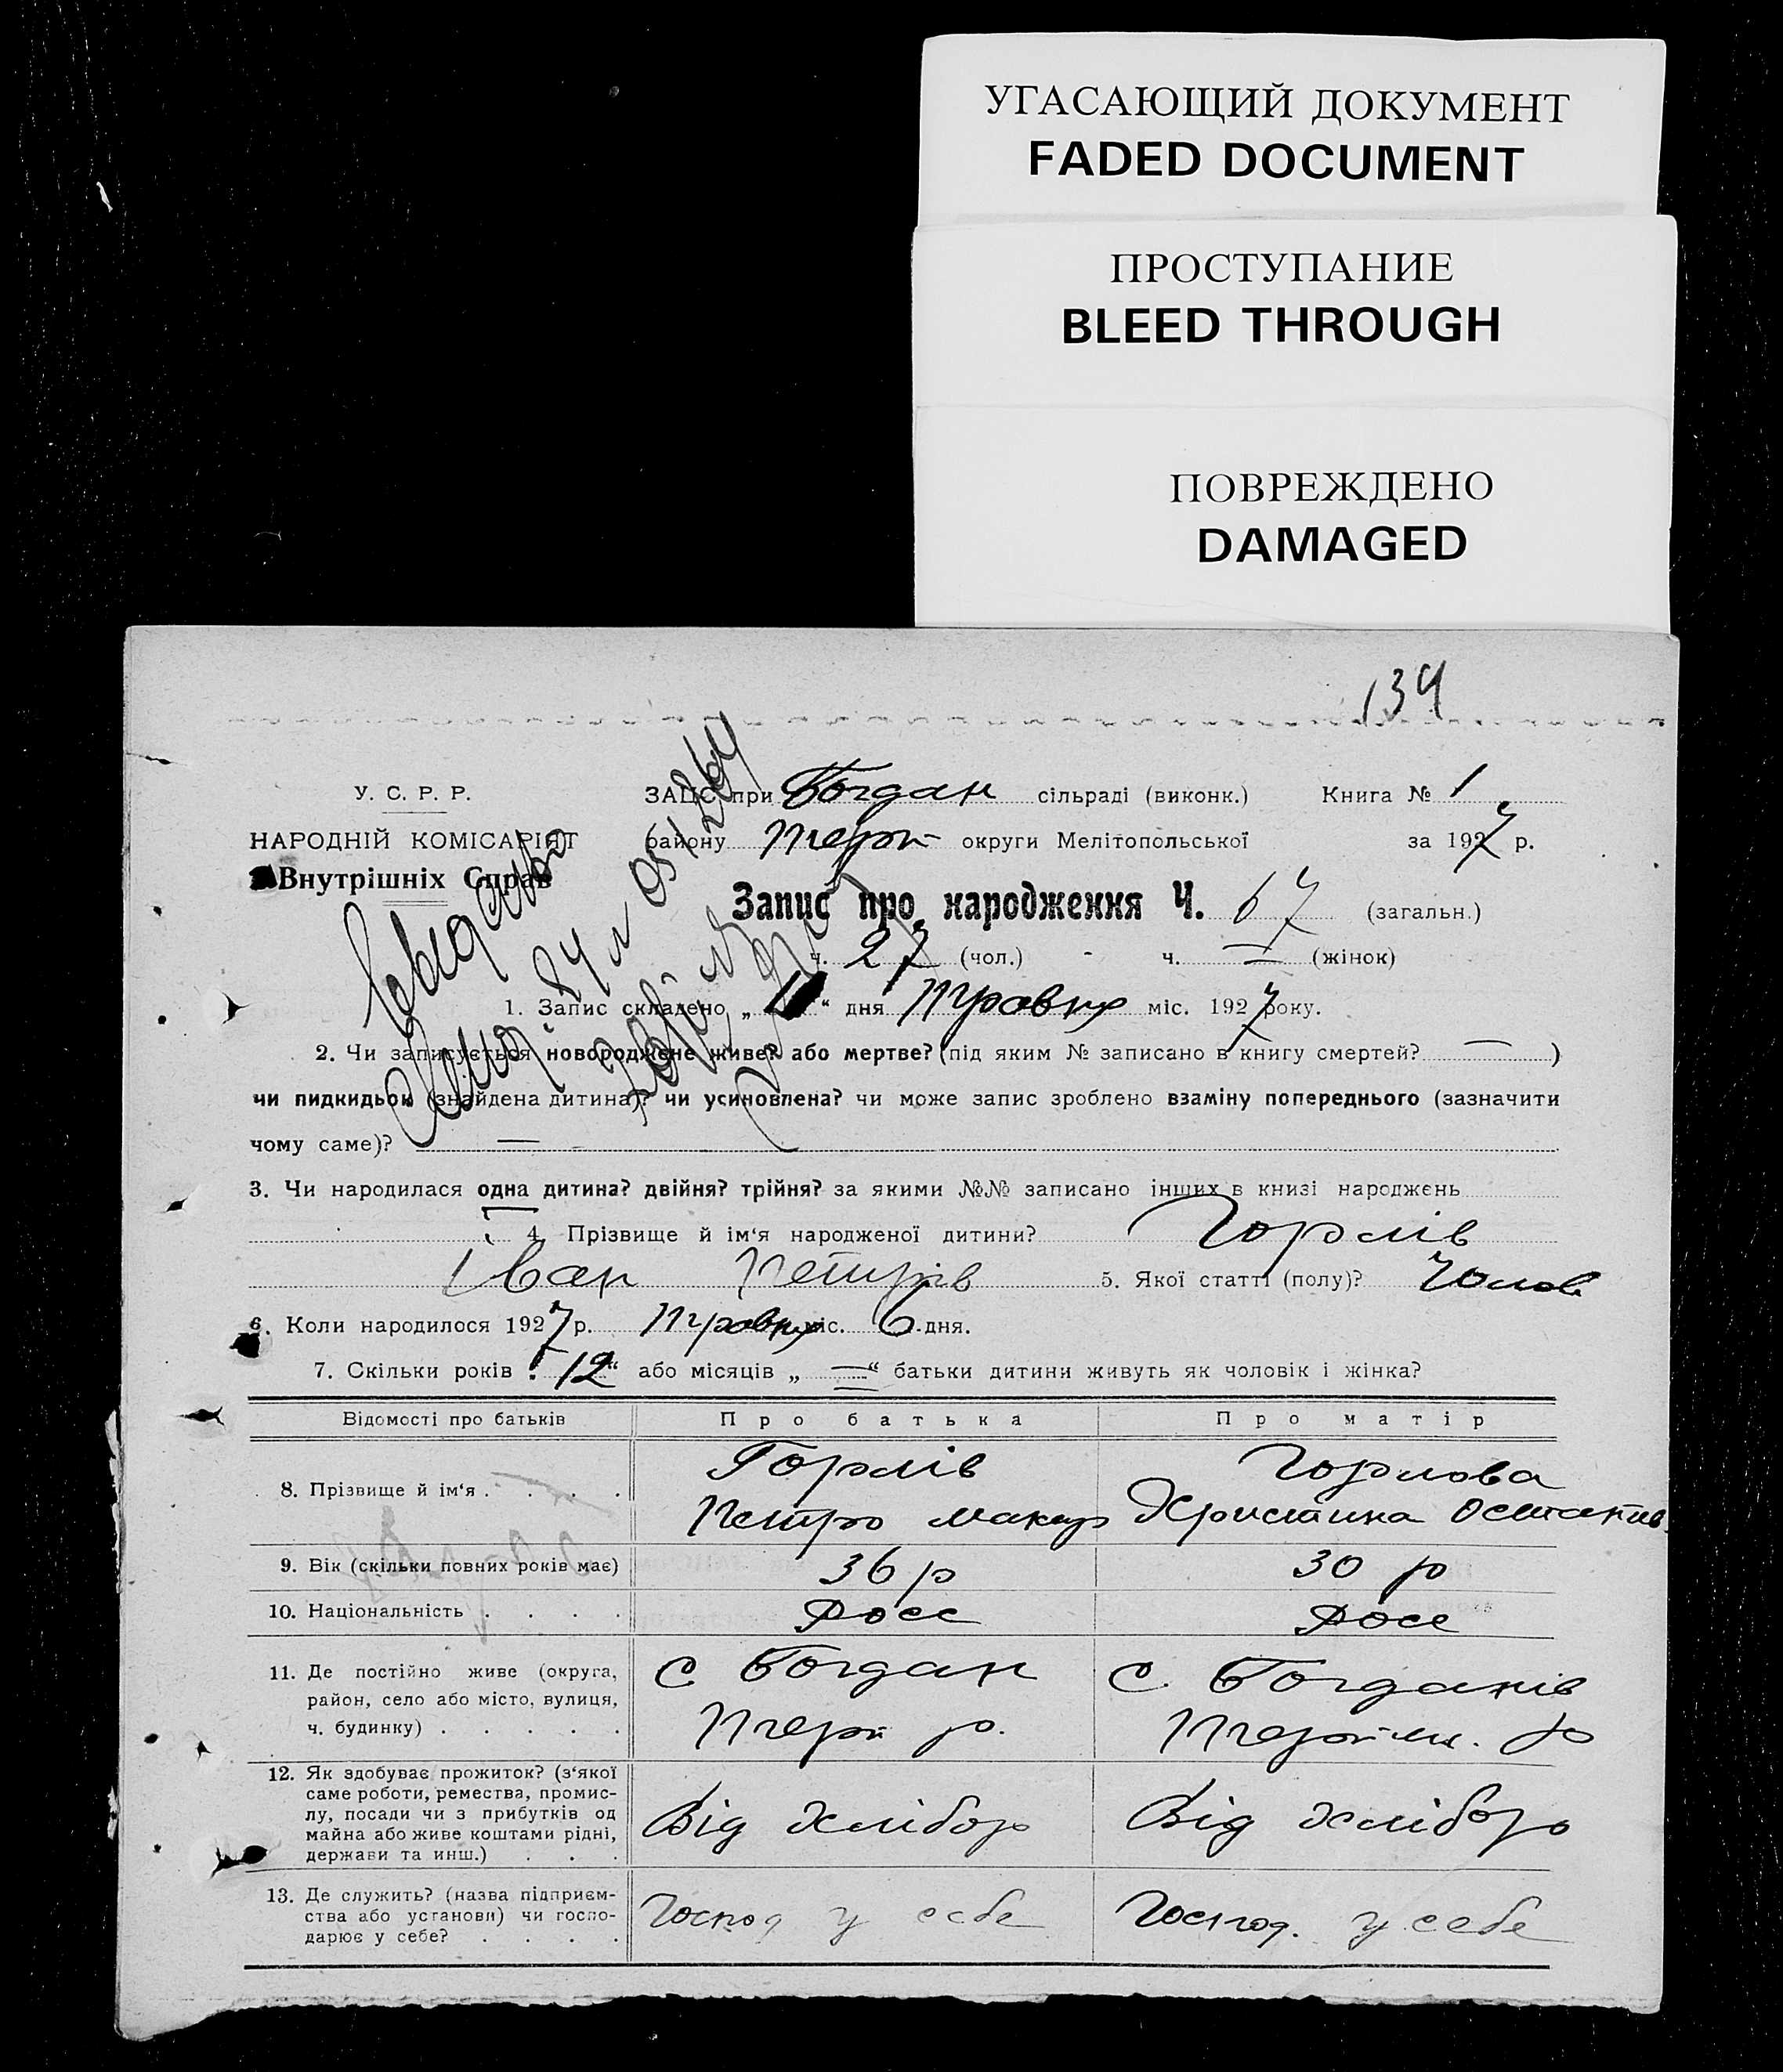 УГАСАЮЩИЙ ДОКУМЕНТ
FADED DOCUMENT
ПРОСТУПАНИЕ
BLEED THROUGH
ПОВРЕЖДЕНО
DAMAGED
134
У. С. Р. Р.
ЗАЦС при Богдан сільраді (виконк.) Книга № 1
НАРОДНІЙ КОМІСАРІЯТ
району Терп округи Мелітопольської за 1927 р.
Внутрішніх Справ
Запис про народження Ч. 67 (загальн.)
ч. 27 (чол.) - ч. — (жінок)
1. Запис складено „ “ дня Травня міс. 1927 року.
2. Чи записується новороджене живе? або мертве? (під яким № записано в книгу смертей? — )
чи пидкидьок (знайдена дитина)? чи усиновлена? чи може запис зроблено взаміну попереднього (зазначити
чому саме)? —
3. Чи народилася одна дитина? двійня? трійня? за якими №№ записано інших в книзі народжень
4. Прізвище й ім‘я народженої дитини? Горлів
Іван Петрів 5. Якої статті (полу)? Чолов
6. Коли народилося 1927 р. Травня міс. 6 дня.
7. Скільки років „ 12 “ або місяців „ — “ батьки дитини живуть як чоловік і жінка?
Відомості про батьків Про батька Про матір
8. Прізвище й ім‘я . . . . Горлів Горлова
Петро Макар Христина Остапів
9. Вік (скільки повних років має) 36 р 30 р
10. Національність . . . . Росс Росс
11. Де постійно живе (округа, район, село або місто, вулиця, ч. будинку) . . . . . С Богдан С. Богданів
Терп р. р
12. Як здобуває прожиток? (з‘якої
саме роботи, ремества, промис-
лу, посади чи з прибутків од
майна або живе коштами рідні,
держави та инш.) . . . Від хлібор Від хлібор
13. Де служить? (назва підприєм-
ства або установи) чи госпо-
дарює у себе? . . . . Господ у себе Господ. у себе